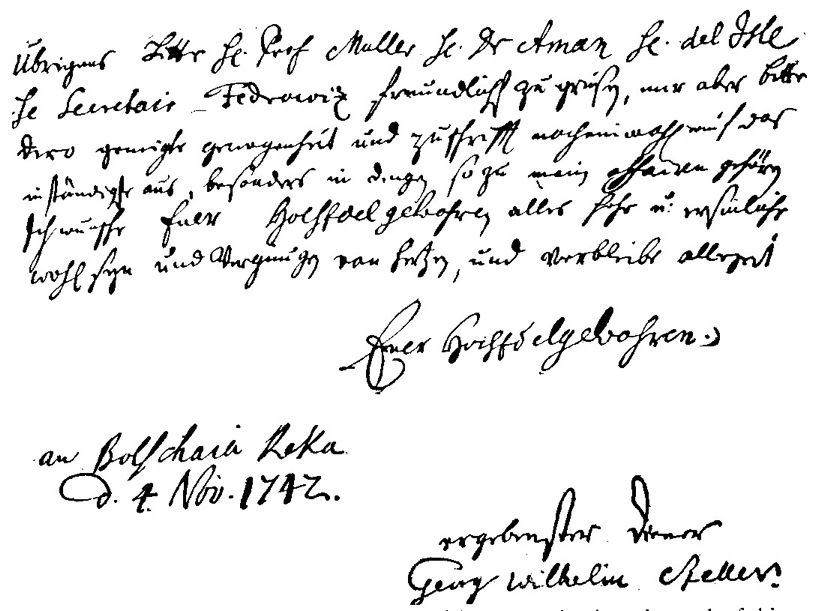 Übrigens bitte H. Prof Muller H. Dr Aman H. del Isle
H Secretair Fedrowiz freundlichst zu grüsen, mir aber bitte
dero geneigte gewogenheit und zuschrifft nocheinmahl auf das
inständigste aus, besonders in dingen so zu mein affairen gehören
Ich wunsche Euer HochEdelgebohren alles hohe u. ersinliche
wohl seyn und Vergnugen von hertzen, und verbleibe allezeit
Euer HochEdelgebohren
an Bolschaia Reka
d. 4. Nov. 1742.
ergebenster Diener
Georg Wilhelm Steller